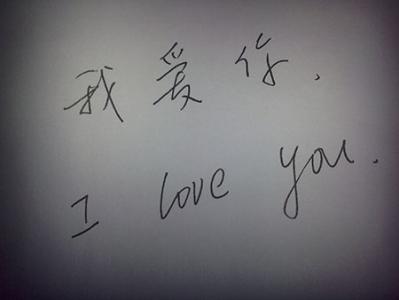 我爱你.
I love you.